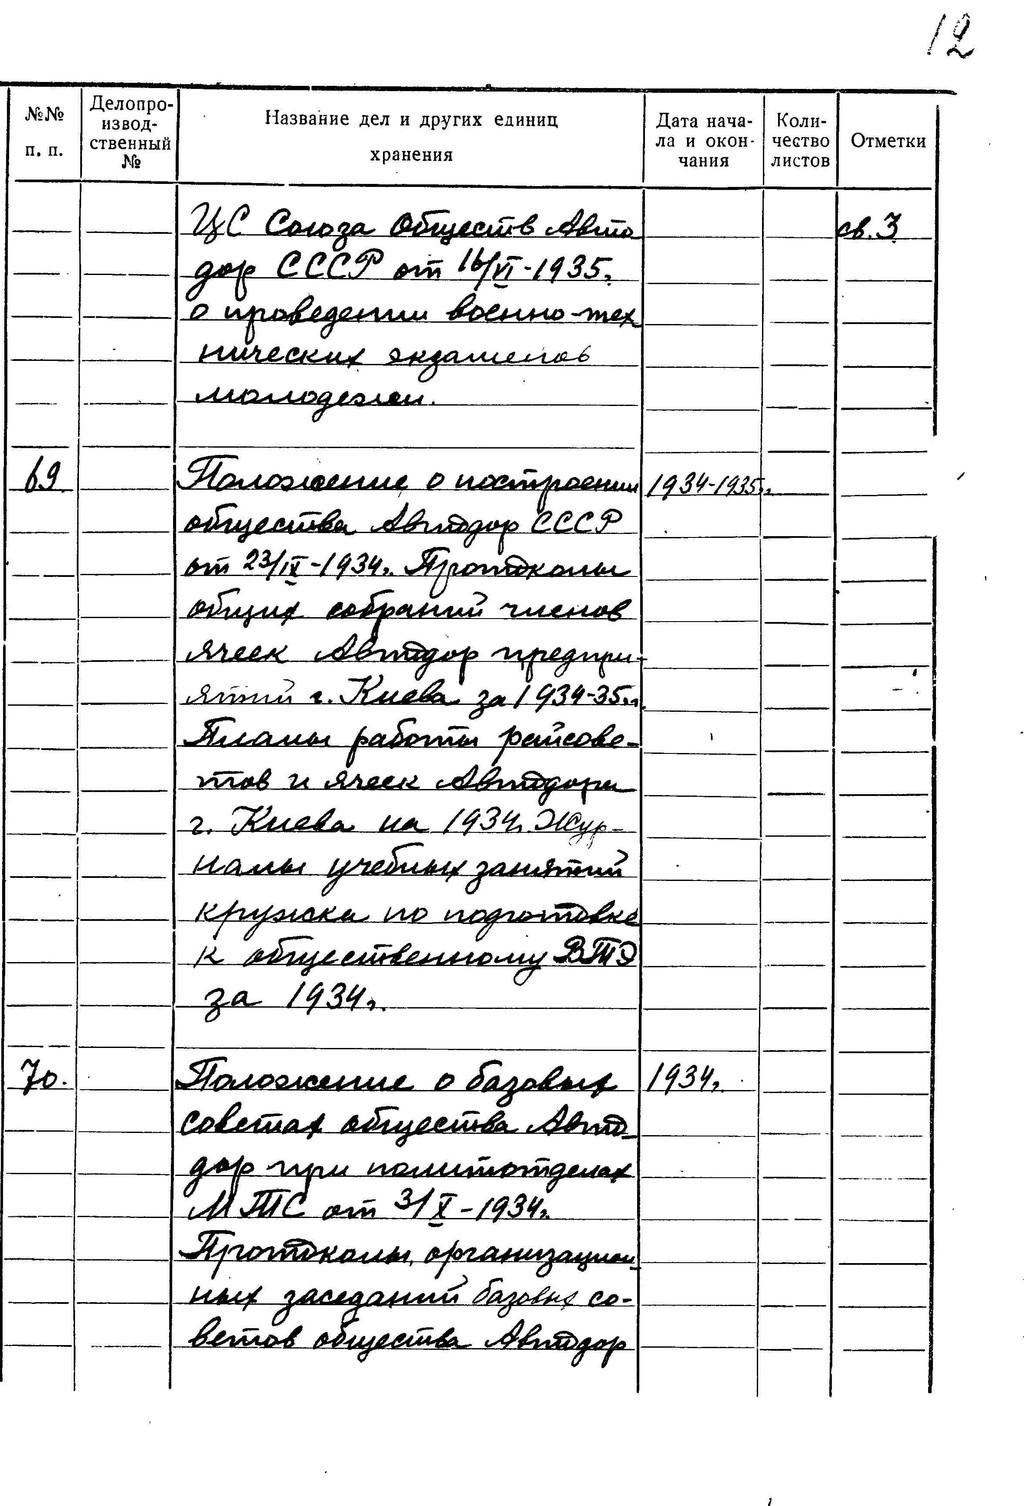 12
№№ п. п.
Делопро-
извод-
ственный
№
Название дел и других единиц
хранения
Дата нача-
ла и окон-
чания
Коли-
чество
листов
Отметки
ЦС Союза Обществ Авто св. 3
дор СССР от 16/VI-1935г.
о проведении военно-тех
нических экзаменов
молодежи.
69 Положение о построении 1934-1935гг.
общества Автодор СССР
от 23/IX-1934г. Протоколы
общих собраний членов
ячеек Автодор предпри-
ятий г. Киева за 1934-35гг.
Планы работы райсове-
тов и ячеек Автодора
г. Киева на 1934г. Жур-
налы учебных занятий
кружка по подготовке
к общественному ВТЭ
за 1934г.
70. Положение о базовых 1934г.
советах общества Авто-
дор при политотделах
МТС от 3/X-1934г.
Протоколы организацион-
ных заседаний базовых со-
ветов общества Автодор